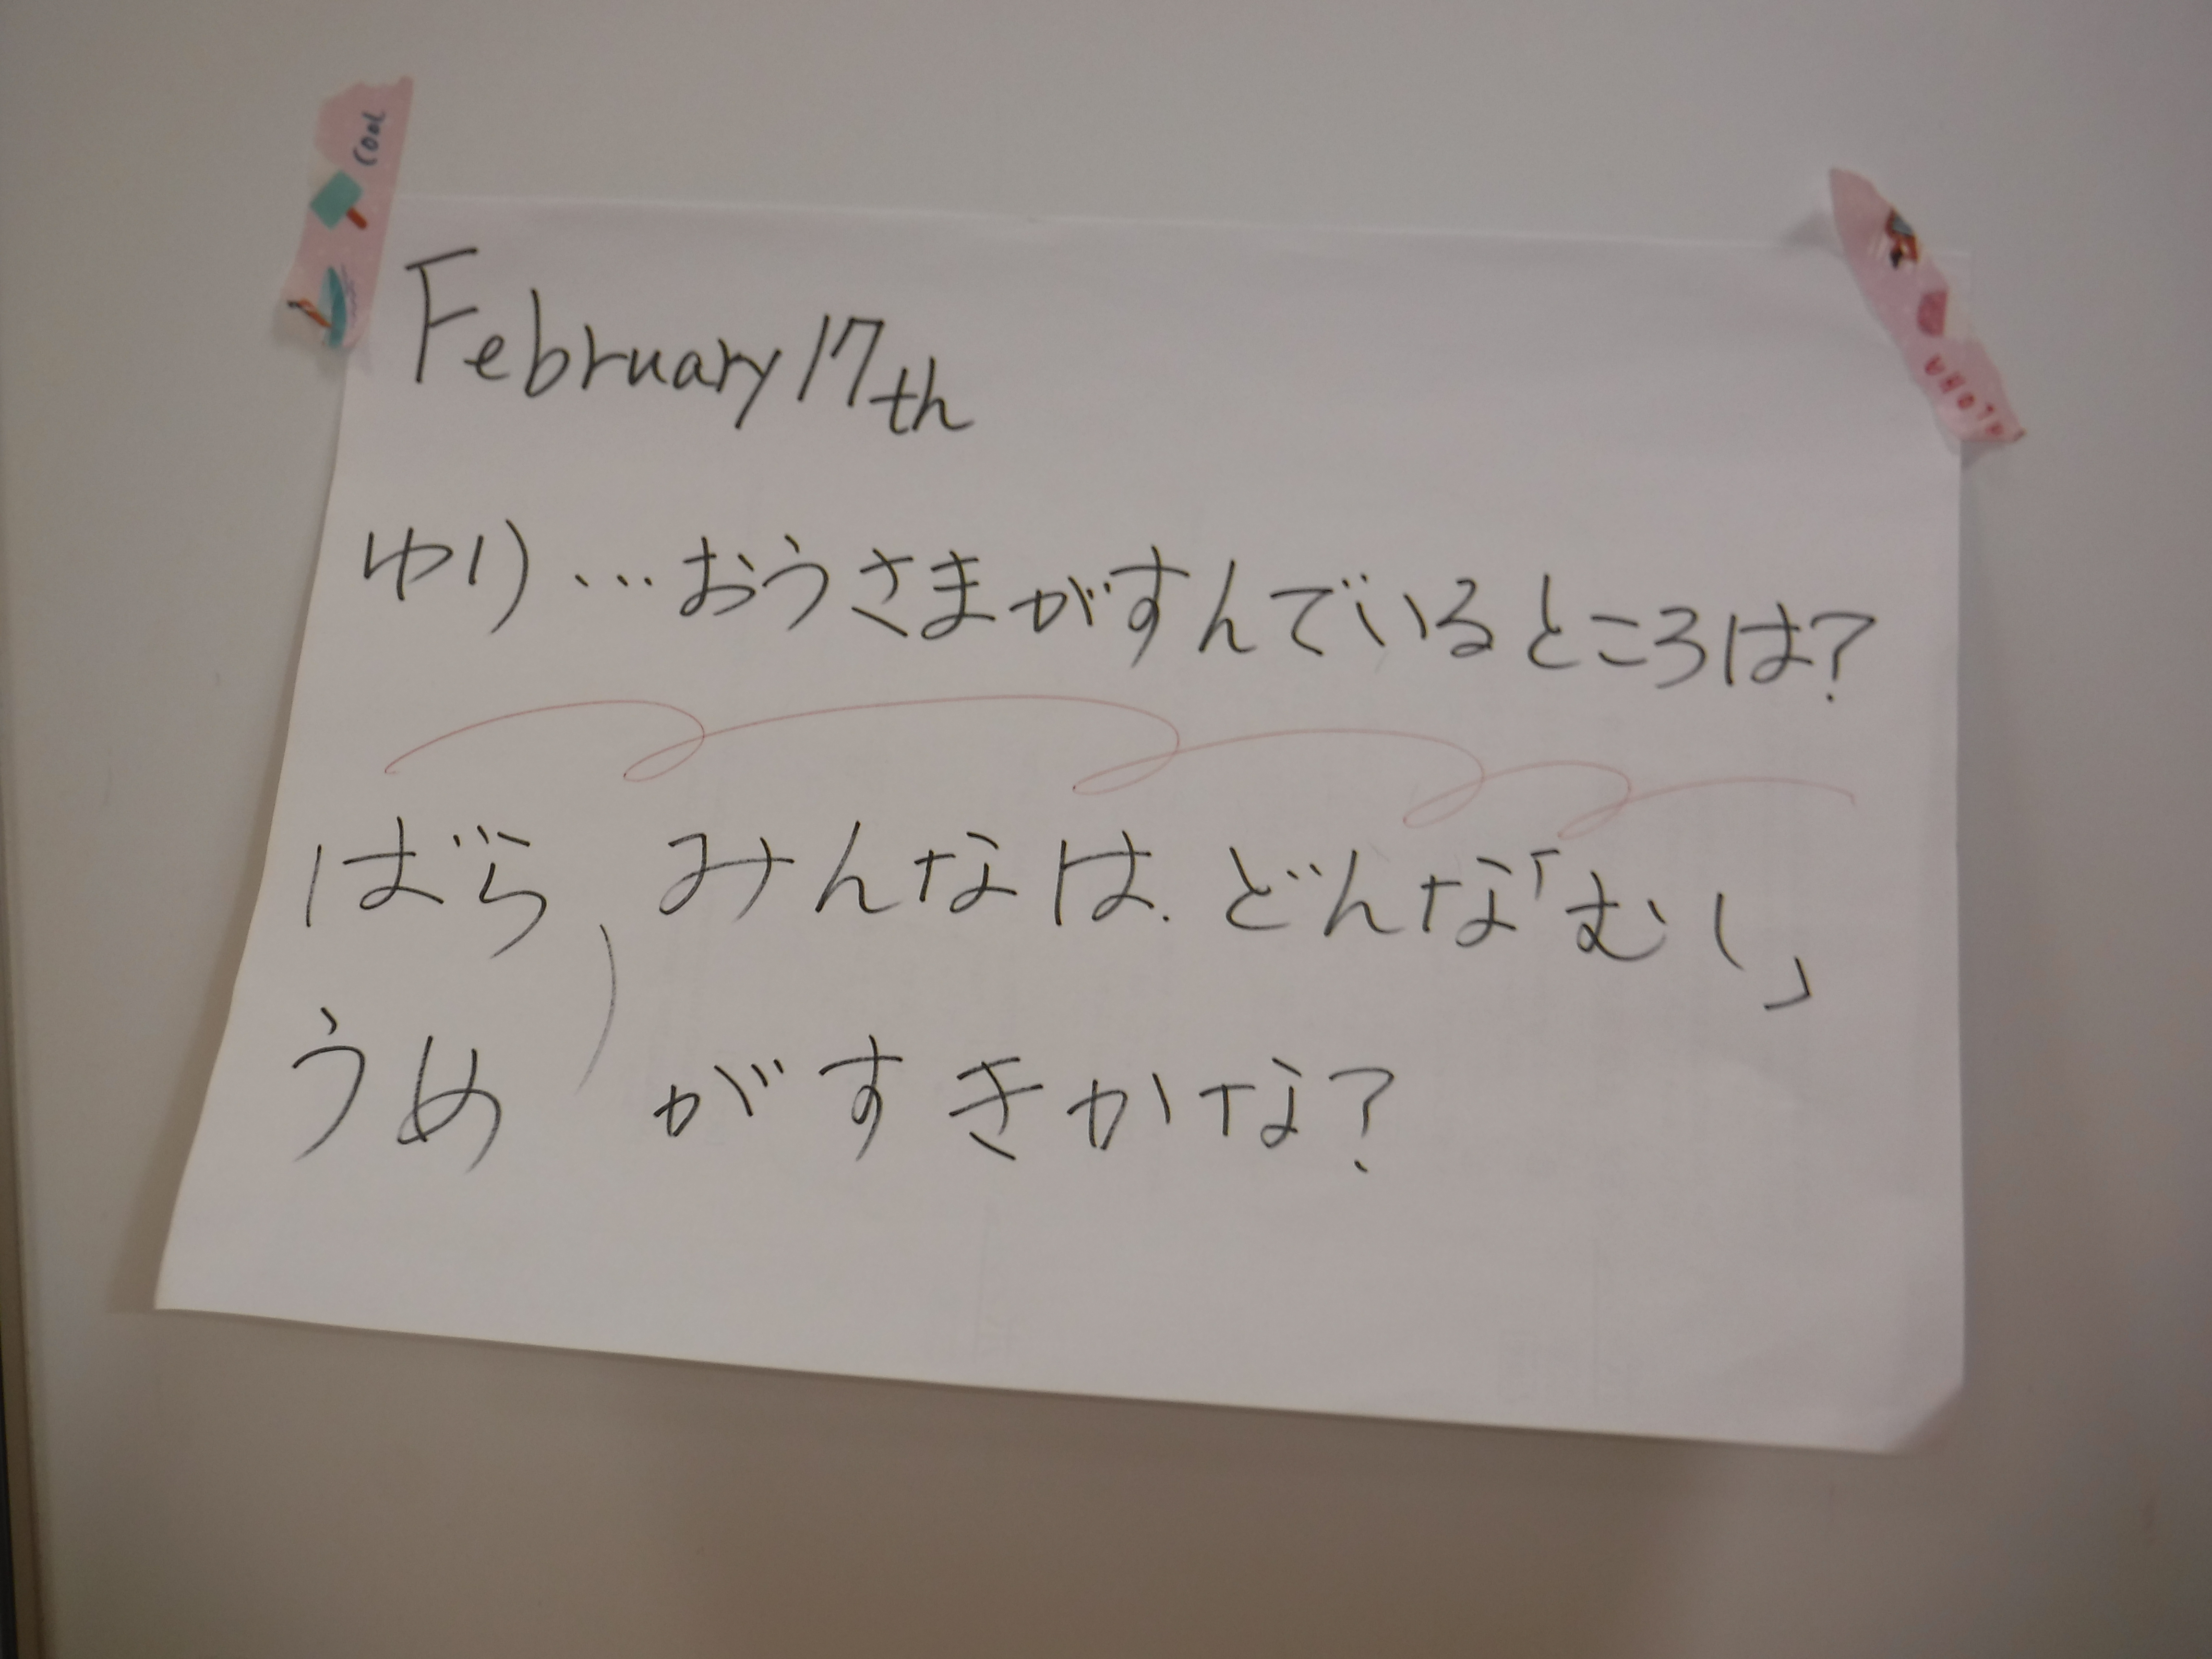 COOL
ALOHA
February 17th
ゆり…おうさまがすんでいるところは?
ばら みんなは.どんな「むし」
うめ がすきかな?